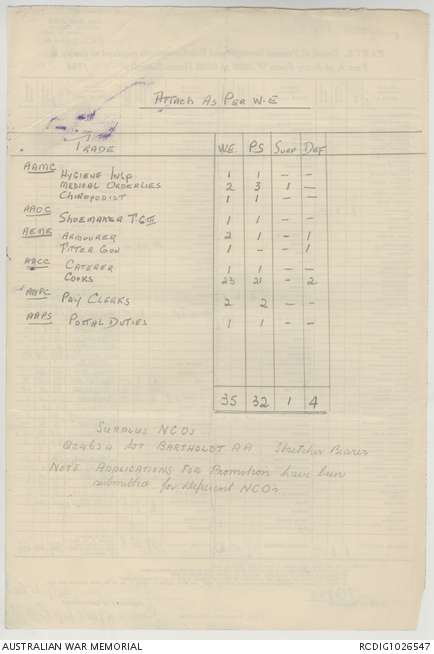 Attach As Per W-E
Trade WE. PS Surp Def
AAMC Hygiene Insp 1 1 — —
Medical Orderlies 2 3 1 —
Chiropodist 1 1 — —
AAOC Shoemaker T.G III 1 1 — —
AEME Armourer 2 1 — 1
Fitter Gun 1 — — 1
AACC Caterer 1 1 — —
Cooks 23 21 — 2
AAPC Pay Clerks 2 2 — —
AAPS Postal Duties 1 1 — —
35 32 1 4
Surplus NCOs
BARTHOLDT AA Stretcher Bearer
Note Applications for Promotion have been
submitted for deficient NCOs
AUSTRALIAN WAR MEMORIAL RCDIG1026547